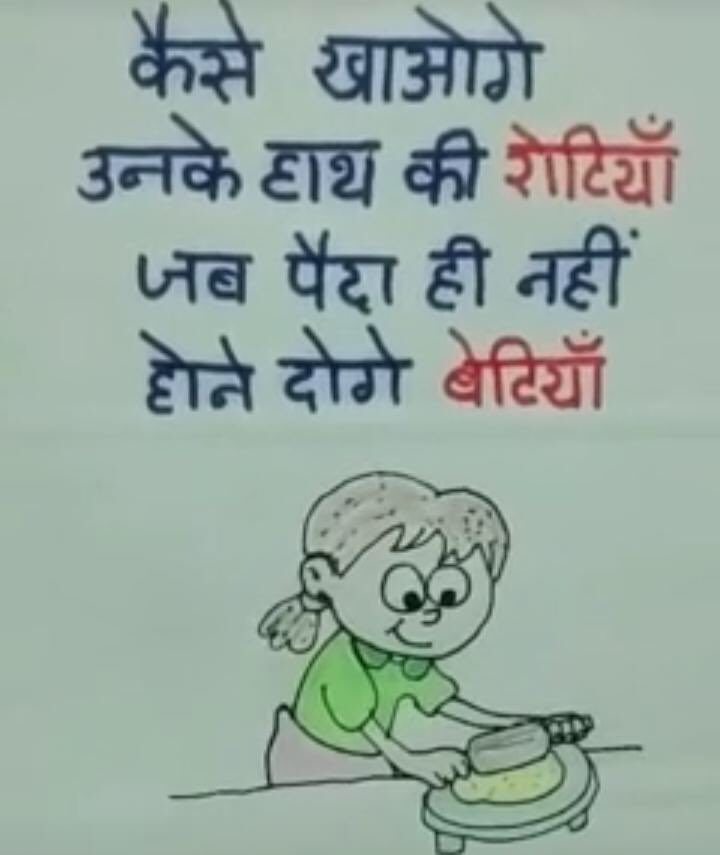 कैसे खाओगे
उनके हाथ की रोटियाँ
जब पैदा ही नहीं
होने दोगे बेटियाँ